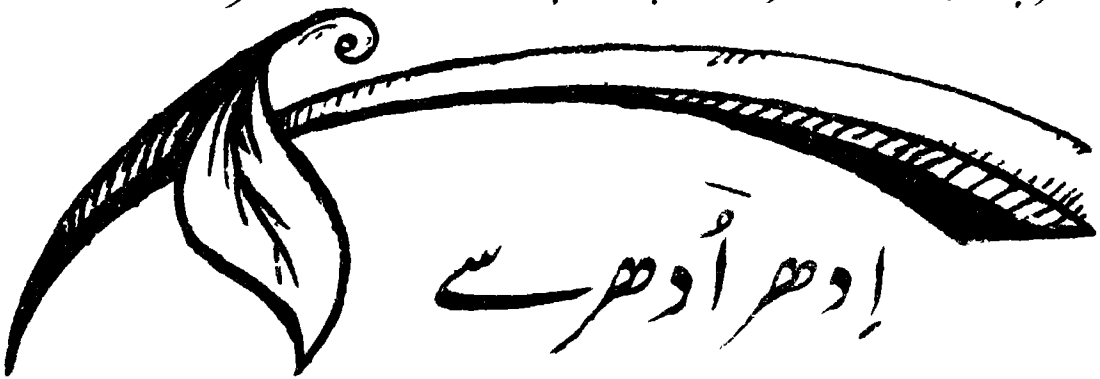 اِدھر اُدھر سے